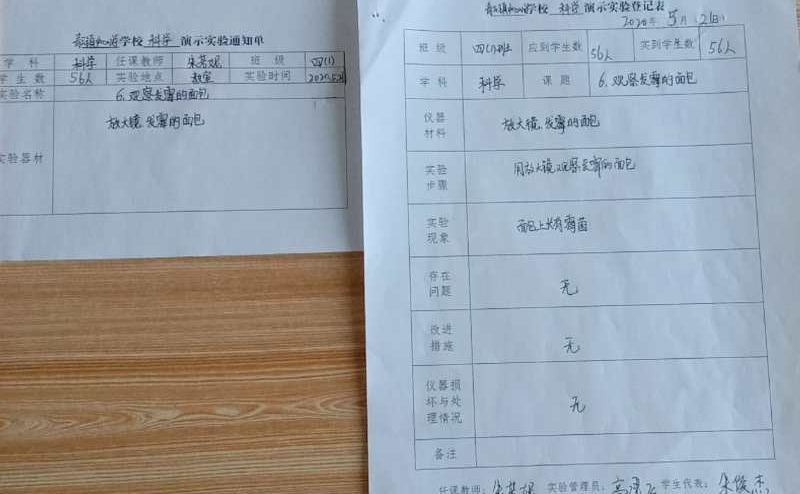 学校 科学 演示实验通知单
学科 科学 任课教师 班级 四(1)
学生数 56人 实验地点 教室 实验时间
实验名称 6.观察发霉的面包
实验器材 放大镜、发霉的面包
学校 科学 演示实验登记表
2020年 5月 (21日)
班级 四(1)班 应到学生数 56人 实到学生数 56人
学科 科学 课题 6.观察发霉的面包
仪器
材料 放大镜、发霉的面包
实验
步骤 用放大镜观察发霉的面包
实验
现象 面包上长有霉菌
存在
问题 无
改进
措施 无
仪器损
坏与处
理情况 无
备注
任课教师: 实验管理员: 学生代表: 朱俊杰